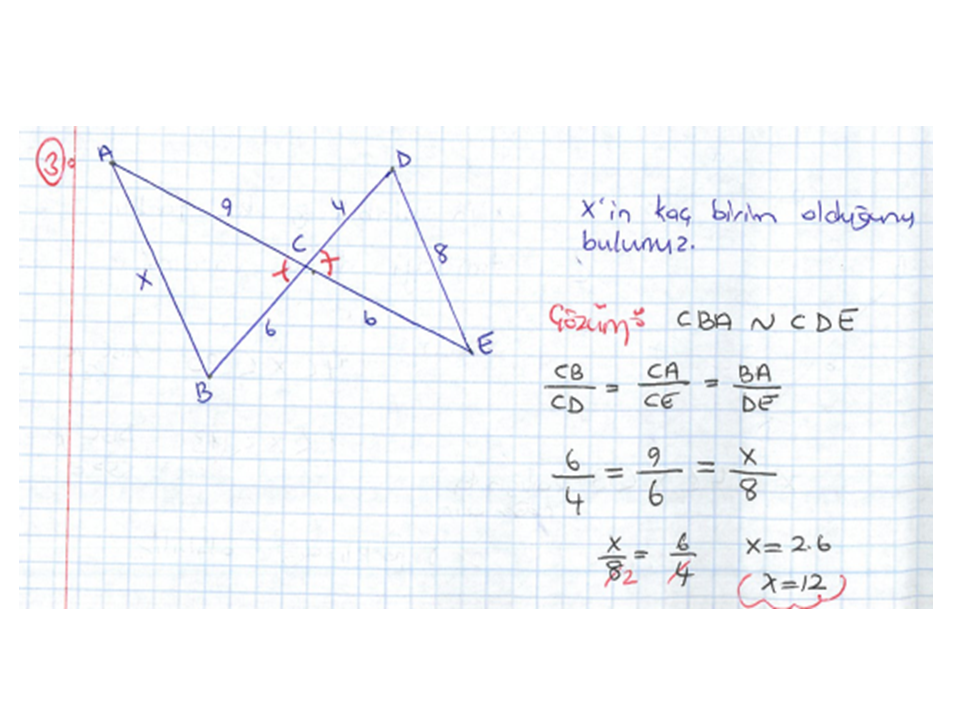 3.
A
D
9
4
C
8
x
6
6
E
B
x'in kaç birim olduğunu
bulunuz.
Çözüm: CBA ~ CDE
CB/CD = CA/CE = BA/DE
6/4 = 9/6 = x/8
x/8 2 = 6/4 x = 2.6
x = 12